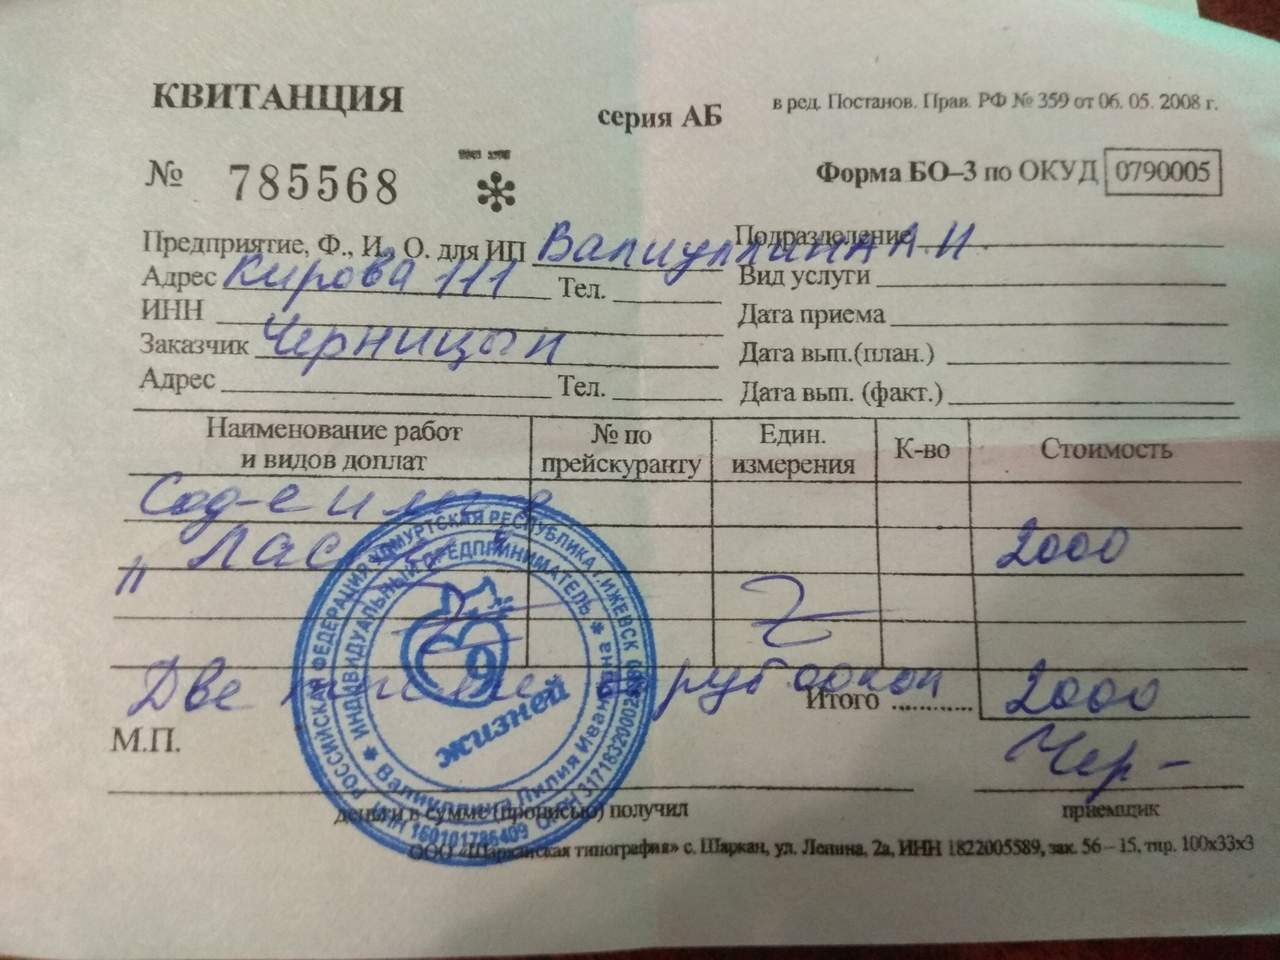 КВИТАНЦИЯ
серия АБ
в ред. Постанов. Прав. РФ № 359 от 06. 05. 2008 г.
№ 785568
Форма БО–3 по ОКУД 0790005
Предприятие, Ф., И., О. для ИП Валиуллина Л.И.
Подразделение
Адрес Кирова 111 Тел.
Вид услуги
ИНН
Дата приема
Заказчик Черницын
Дата вып.(план.)
Адрес Тел.
Дата вып. (факт.)
Наименование работ и видов доплат
№ по прейскуранту
Един. измерения
К-во
Стоимость
Сод-е и
2000
Две рублей
Итого ............ 2000
М.П.
Чер-
деньги в сумме (прописью) получил
приемщик
ООО «Шарканская типография» с. Шаркан, ул. Ленина, 2а, ИНН 1822005589, зак. 56 – 15, тир. 100х33х3
РОССИЙСКАЯ ФЕДЕРАЦИЯ УДМУРТСКАЯ РЕСПУБЛИКА Г.ИЖЕВСК
ИНДИВИДУАЛЬНЫЙ ПРЕДПРИНИМАТЕЛЬ
Валиуллина Лилия Ивановна
9 жизней